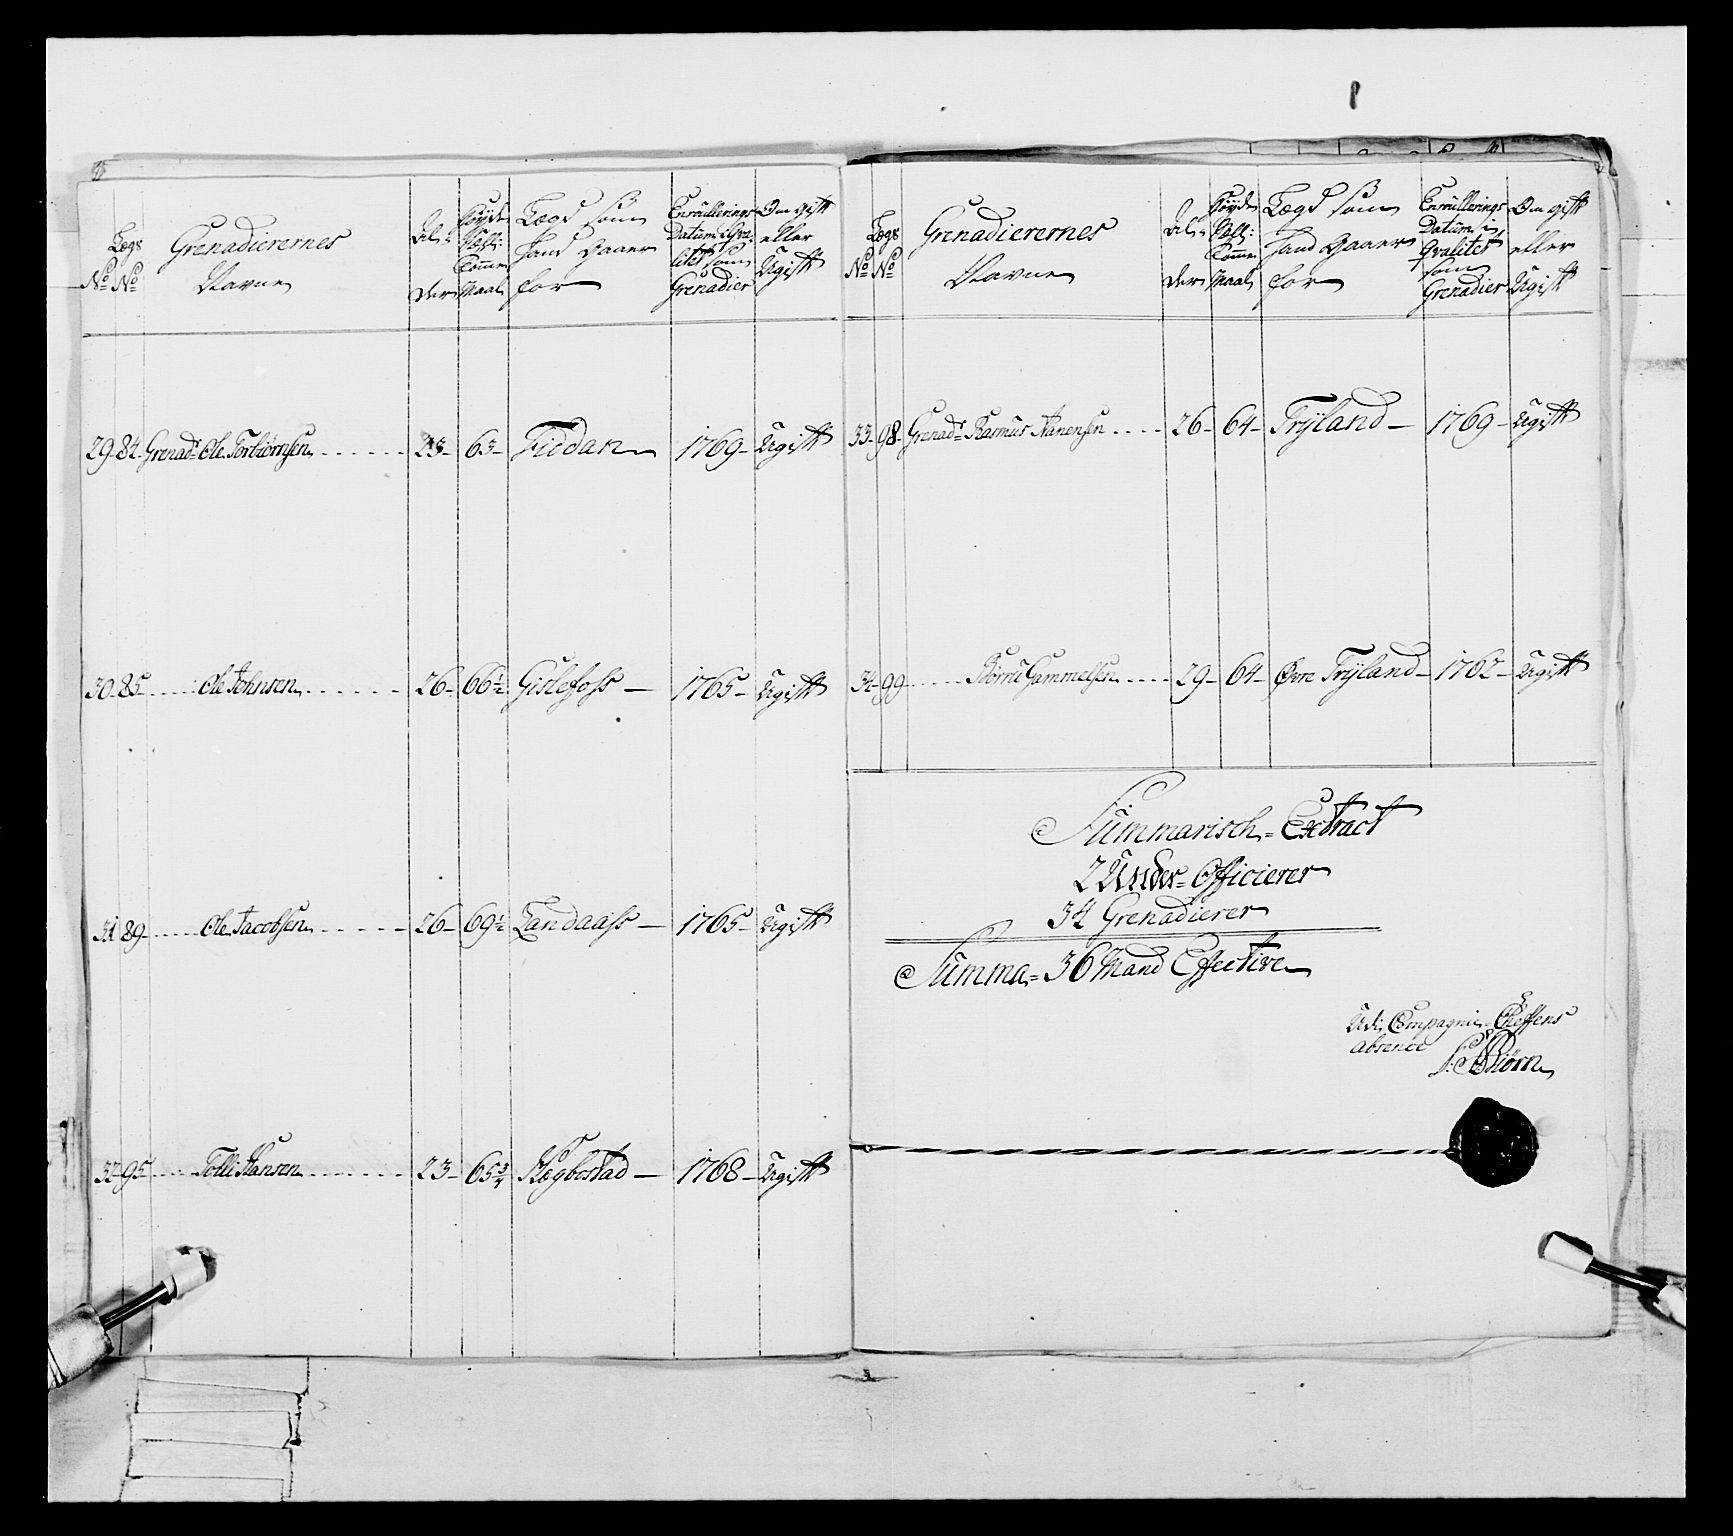 Lægs
No No
Grenadierernes
Navne
Al-
der
Høyde
Maal
Lægd som
hand gaaer
for
Enroullerings
Datum i qva
litet som
Grenadier
Om gift
eller
Ugift
29 84 Grenad: Ole Torbiörnsen 23 63 Fiddan 1769 Ugift
30 85 Ole Johnsen 26 66½ Gislefoss 1765 Ugift
31 89 Ole Jacobsen 26 69½ Landaass 1765 Ugift
32 95 Tolli Hansen 23 65¾ Hægbostad 1768 Ugift
Lægs
No No
Grenadierernes
Navne
Al-
der
Høyde
Maal
Lægd som
hand gaaer
for
Enroullerings
Datum i
qvalitet
som
Grenadier
Om gift
eller
Ugift
33 98 Grenad: Rasmus Hanensen 26 64 Tryland 1769 Ugift
34 99 Börru Gammelsen 29 64 Øvre Tryland 1762 Ugift
Summarisch Extract
2 Under-Officierer
34 Grenadierer
Summa = 36 Mand Effective
Udi Compagnie Cheffens
absence
Biörn